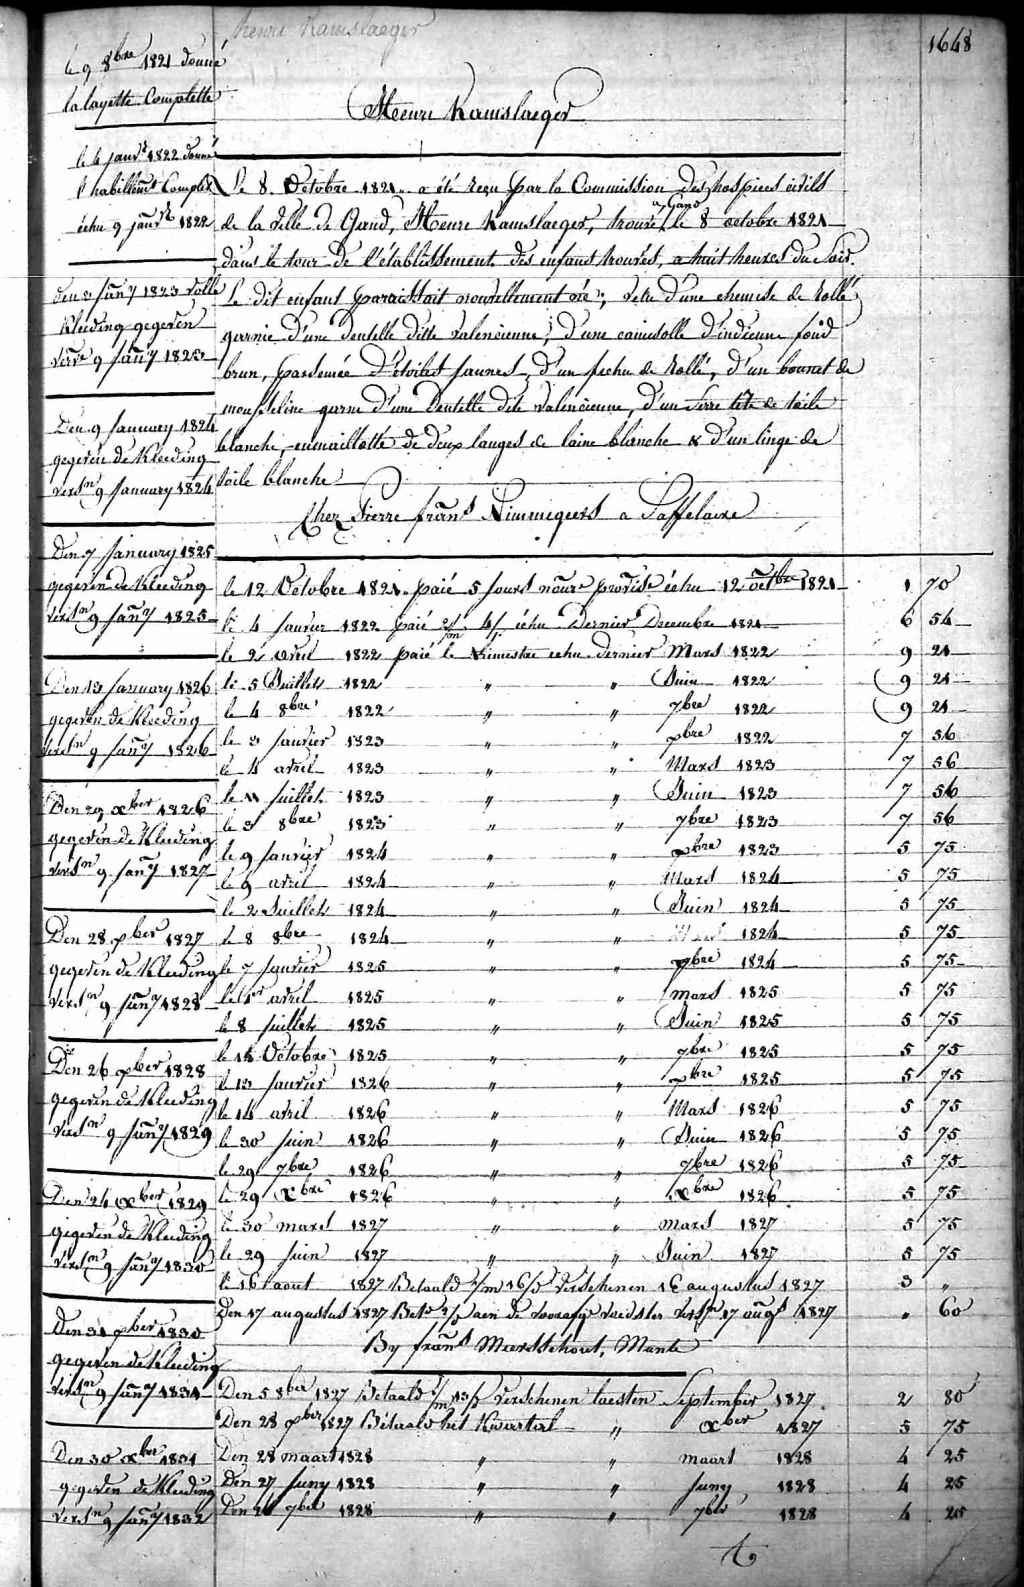 henri Ramslaeger
1648
Henri Ramslaeger
le 9 8bre 1821 donné
la layette Complette
le 4 janvr 1822 donné
l'habillemt Complet
échu 9 janvr 1822
den 3 January 1823 volle
Kleeding gegeven
versn 9 Jany 1823
Den 9 January 1824
gegeven de Kleeding
versn 9 January 1824
Den 7 January 1825
gegeven de Kleeding
versn 9 Jany 1825
Den 13 January 1826
gegeven de Kleeding
versn 9 Jany 1826
Den 29 xber 1826
gegeven de Kleeding
versn 9 Jany 1827
Den 28 xber 1827
gegeven de Kleeding
versn 9 Jany 1828
Den 26 xber 1828
gegeven de Kleeding
versn 9 Jany 1829
Den 24 xber 1829
gegeven de Kleeding
versn 9 Jany 1830
Den 31 xber 1830
gegeven de Kleeding
versn 9 Jany 1831
Den 30 xber 1831
gegeven de Kleeding
versn 9 Jany 1832
Le 8 Octobre 1821 a été reçu par la Commission des hospices civils
de la ville de Gand, Henri Ramslaeger, trouvé a Gand le 8 octobre 1821
dans le tour de l'établissement des enfans trouvés, a huit heures du Soir.
Le dit enfant paraissait nouvellement né; vetu d'une chemise de Rollé
garnie d'une dentelle ditte valencienne, d'une camisolle d'indienne fond
brun, parsemée d'étoiles jaunes, d'un fichu de Rollé, d'un bonnet de
mousseline garni d'une Dentelle dite valencienne, d'un serre tête de toile
blanche, enmaillotté de deux langes de laine blanche & d'un linge de
toile blanche
Chez Pierre frans Nimmegeers a Saffelaere
le 12 Octobre 1821 paié 5 jours nourre provise échu 12 octbre 1821 1 70
le 4 Janvier 1822 paié échu Dernier Decembre 1821 6 54
le 2 avril 1822 paié le trimestre echu dernier Mars 1822 9 21
le 5 Juillet 1822 " " Juin 1822 9 21
le 4 8bre 1822 " " 7bre 1822 9 21
le 3 janvier 1823 " " xbre 1822 7 56
le 4 avril 1823 " " Mars 1823 7 56
le 11 juillet 1823 " " Juin 1823 7 56
le 3 8bre 1823 " " 7bre 1823 7 56
le 9 Janvier 1824 " " xbre 1823 5 75
le 9 avril 1824 " " Mars 1824 5 75
le 2 Juillet 1824 " " Juin 1824 5 75
le 8 8bre 1824 " " 1824 5 75
le 7 Janvier 1825 " " xbre 1824 5 75
le 1er avril 1825 " " mars 1825 5 75
le 8 juillet 1825 " " Juin 1825 5 75
le 14 Octobre 1825 " " 7bre 1825 5 75
le 13 janvier 1826 " " xbre 1825 5 75
le 14 avril 1826 " " Mars 1826 5 75
le 30 juin 1826 " " Juin 1826 5 75
le 29 7bre 1826 " " 7bre 1826 5 75
le 29 xbre 1826 " " xbre 1826 5 75
le 30 mars 1827 " " mars 1827 5 75
le 29 juin 1827 " " Juin 1827 5 75
le 16 aout 1827 Betaald verschenen 16 augustus 1827 3 "
Den 17 augustus 1827 Betd aen de voedster versn 17 augs 1827 " 60
By frans Meersschout, Mante
Den 5 8ber 1827 Betaald verschenen laesten September 1827 2 80
Den 28 xber 1827 Betaald het Kwartal " xber 1827 5 75
Den 28 maart 1828 " " maart 1828 4 25
Den 27 Juny 1828 " " Juny 1828 4 25
Den 26 7ber 1828 " " 7ber 1828 4 25